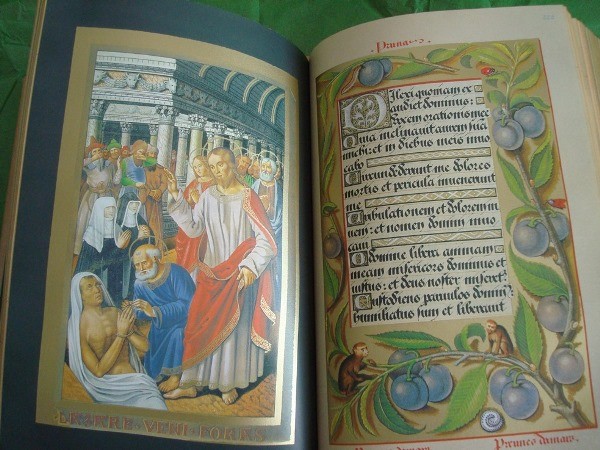 LAZARE · VENI · FORAS
Dilexi quoniam ex
audiet dominus:
vocem orationis mee
Quia inclinauit aurem sua
michi: et in diebus meis inuo
cabo
Circundederunt me dolores
mortis et pericula inuenerunt
me
Tribulationem et dolorem in
ueni: et nomen domini inuo
caui
O domine libera animam
meam misericors dominus et
iustus: et deus noster miseret
Custodiens paruulos domin
humiliatus sum et liberauit
Prunes damars